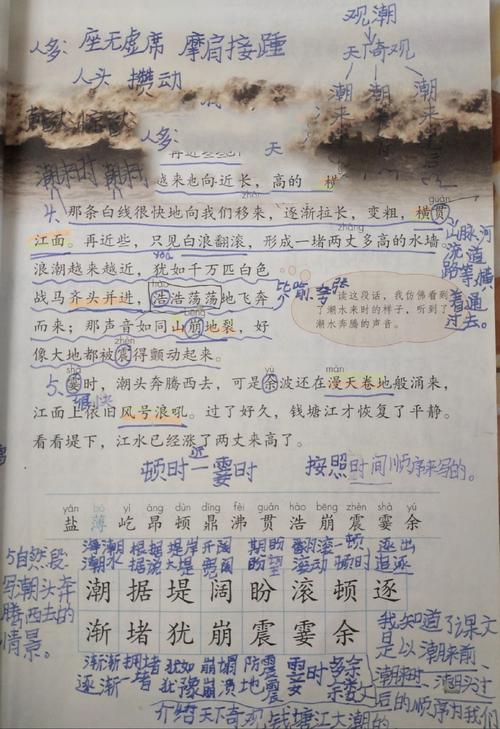 观潮
人多：座无虚席 摩肩接踵
天下奇观
人头攒动
潮来前
潮来时
潮来后
人多：
天
再近些
越来也向近长，高的 横
guàn
4. 那条白线很快地向我们移来，逐渐拉长，变粗，横贯
江面。再近些，只见白浪翻滚，形成一堵两丈多高的水墙。
浪潮越来越近，犹如千万匹白色
战马齐头并进，浩浩荡荡地飞奔
而来；那声音如同山崩地裂，好
像大地都被震得颤动起来。
山脉河流道路等横着通过去。
比喻 夸张
读这段话，我仿佛看到
了潮水来时的样子，听到了
潮水奔腾的声音。
shà yú màn
5. 霎时，潮头奔腾西去，可是余波还在漫天卷地般涌来，
很快
江面上依旧风号浪吼。过了好久，钱塘江才恢复了平静。
看看堤下，江水已经涨了两丈来高了。
顿时 近 霎时
按照时间顺序来写的。
yán bó yì áng dùn dǐng fèi guàn hào bēng zhèn shà yú
盐 薄 屹 昂 顿 鼎 沸 贯 浩 崩 震 霎 余
海潮 根据 堤岸 开阔 期盼 翻滚 一顿 逐出
潮水 根据 大堤 宽阔 盼望 滚动 顿时 追逐
潮 据 堤 阔 盼 滚 顿 逐
渐 堵 犹 崩 震 霎 余
渐渐 拥堵 犹如 崩塌 防震 霎时 多余
逐渐 一堵 犹豫 崩溃 地震
5自然段
写潮头奔
腾西去的
情景。
我知道了课文
是以潮来前、
潮来时、潮头过
后的顺序为我们
介绍天下奇观钱塘江大潮的。